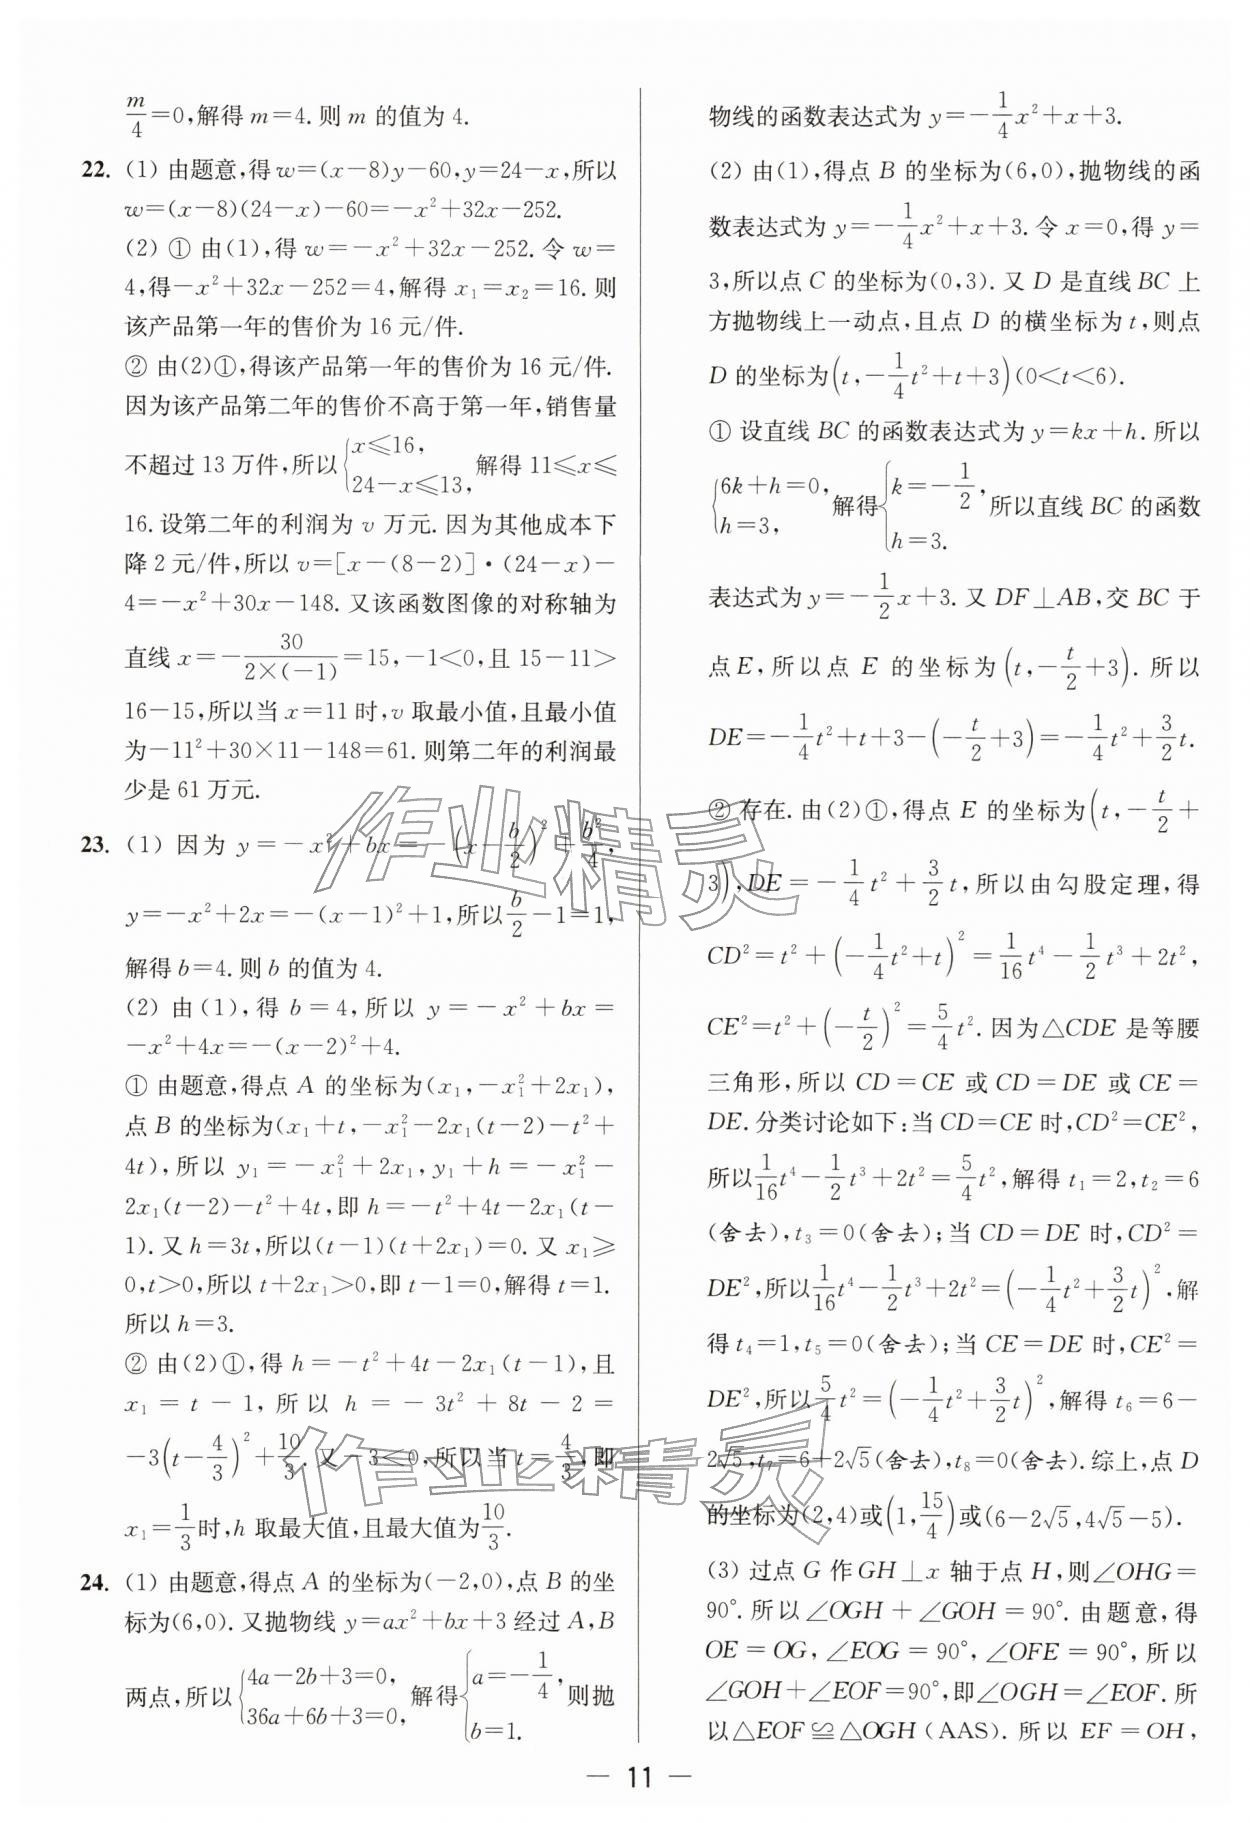 m/4=0,解得 m=4. 则 m 的值为 4.
22. (1) 由题意,得 w=(x-8)y-60,y=24-x,所以
w=(x-8)(24-x)-60=-x²+32x-252.
(2) ① 由(1),得 w=-x²+32x-252. 令 w=
4,得-x²+32x-252=4,解得 x₁=x₂=16. 则
该产品第一年的售价为 16 元/件.
② 由(2)①,得该产品第一年的售价为 16 元/件.
因为该产品第二年的售价不高于第一年,销售量
不超过 13 万件,所以{x≤16, 24-x≤13, 解得 11≤x≤
16. 设第二年的利润为 v 万元. 因为其他成本下
降 2 元/件,所以 v=[x-(8-2)]·(24-x)-
4=-x²+30x-148. 又该函数图像的对称轴为
直线 x=-30/(2×(-1))=15,-1<0,且 15-11>
16-15,所以当 x=11 时,v 取最小值,且最小值
为-11²+30×11-148=61. 则第二年的利润最
少是 61 万元.
23. (1) 因为 y=-x²+bx=-(x-b/2)²+b²/4,
y=-x²+2x=-(x-1)²+1,所以b/2-1=1,
解得 b=4. 则 b 的值为 4.
(2) 由(1),得 b=4,所以 y=-x²+bx=
-x²+4x=-(x-2)²+4.
① 由题意,得点 A 的坐标为(x₁,-x₁²+2x₁),
点 B 的坐标为(x₁+t,-x₁²-2x₁(t-2)-t²+
4t),所以 y₁=-x₁²+2x₁,y₁+h=-x₁²-
2x₁(t-2)-t²+4t,即 h=-t²+4t-2x₁(t-
1). 又 h=3t,所以(t-1)(t+2x₁)=0. 又 x₁≥
0,t>0,所以 t+2x₁>0,即 t-1=0,解得 t=1.
所以 h=3.
② 由(2)①,得 h=-t²+4t-2x₁(t-1),且
x₁=t-1,所以 h=-3t²+8t-2=
-3(t-4/3)²+10/3. 又-3<0,所以当 t=4/3,即
x₁=1/3时,h 取最大值,且最大值为10/3.
24. (1) 由题意,得点 A 的坐标为(-2,0),点 B 的坐
标为(6,0). 又抛物线 y=ax²+bx+3 经过 A,B
两点,所以{4a-2b+3=0, 36a+6b+3=0, 解得{a=-1/4, b=1. 则抛
物线的函数表达式为 y=-1/4x²+x+3.
(2) 由(1),得点 B 的坐标为(6,0),抛物线的函
数表达式为 y=-1/4x²+x+3. 令 x=0,得 y=
3,所以点 C 的坐标为(0,3). 又 D 是直线 BC 上
方抛物线上一动点,且点 D 的横坐标为 t,则点
D 的坐标为(t,-1/4t²+t+3)(0<t<6).
① 设直线 BC 的函数表达式为 y=kx+h. 所以
{6k+h=0, h=3, 解得{k=-1/2, h=3. 所以直线 BC 的函数
表达式为 y=-1/2x+3. 又 DF⊥AB,交 BC 于
点 E,所以点 E 的坐标为(t,-t/2+3). 所以
DE=-1/4t²+t+3-(-t/2+3)=-1/4t²+3/2t.
② 存在. 由(2)①,得点 E 的坐标为(t,-t/2+
3),DE=-1/4t²+3/2t,所以由勾股定理,得
CD²=t²+(-1/4t²+t)²=1/16t⁴-1/2t³+2t²,
CE²=t²+(-t/2)²=5/4t². 因为△CDE 是等腰
三角形,所以 CD=CE 或 CD=DE 或 CE=
DE. 分类讨论如下:当 CD=CE 时,CD²=CE²,
所以1/16t⁴-1/2t³+2t²=5/4t²,解得 t₁=2,t₂=6
(舍去),t₃=0(舍去);当 CD=DE 时,CD²=
DE²,所以1/16t⁴-1/2t³+2t²=(-1/4t²+3/2t)²,解
得 t₄=1,t₅=0(舍去);当 CE=DE 时,CE²=
DE²,所以5/4t²=(-1/4t²+3/2t)²,解得 t₆=6-
2√5,t₇=6+2√5(舍去),t₈=0(舍去). 综上,点 D
的坐标为(2,4)或(1,15/4)或(6-2√5,4√5-5).
(3) 过点 G 作 GH⊥x 轴于点 H,则∠OHG=
90°. 所以∠OGH+∠GOH=90°. 由题意,得
OE=OG,∠EOG=90°,∠OFE=90°,所以
∠GOH+∠EOF=90°,即∠OGH=∠EOF. 所
以△EOF≌△OGH(AAS). 所以 EF=OH,
— 11 —
作业精灵
作业精灵